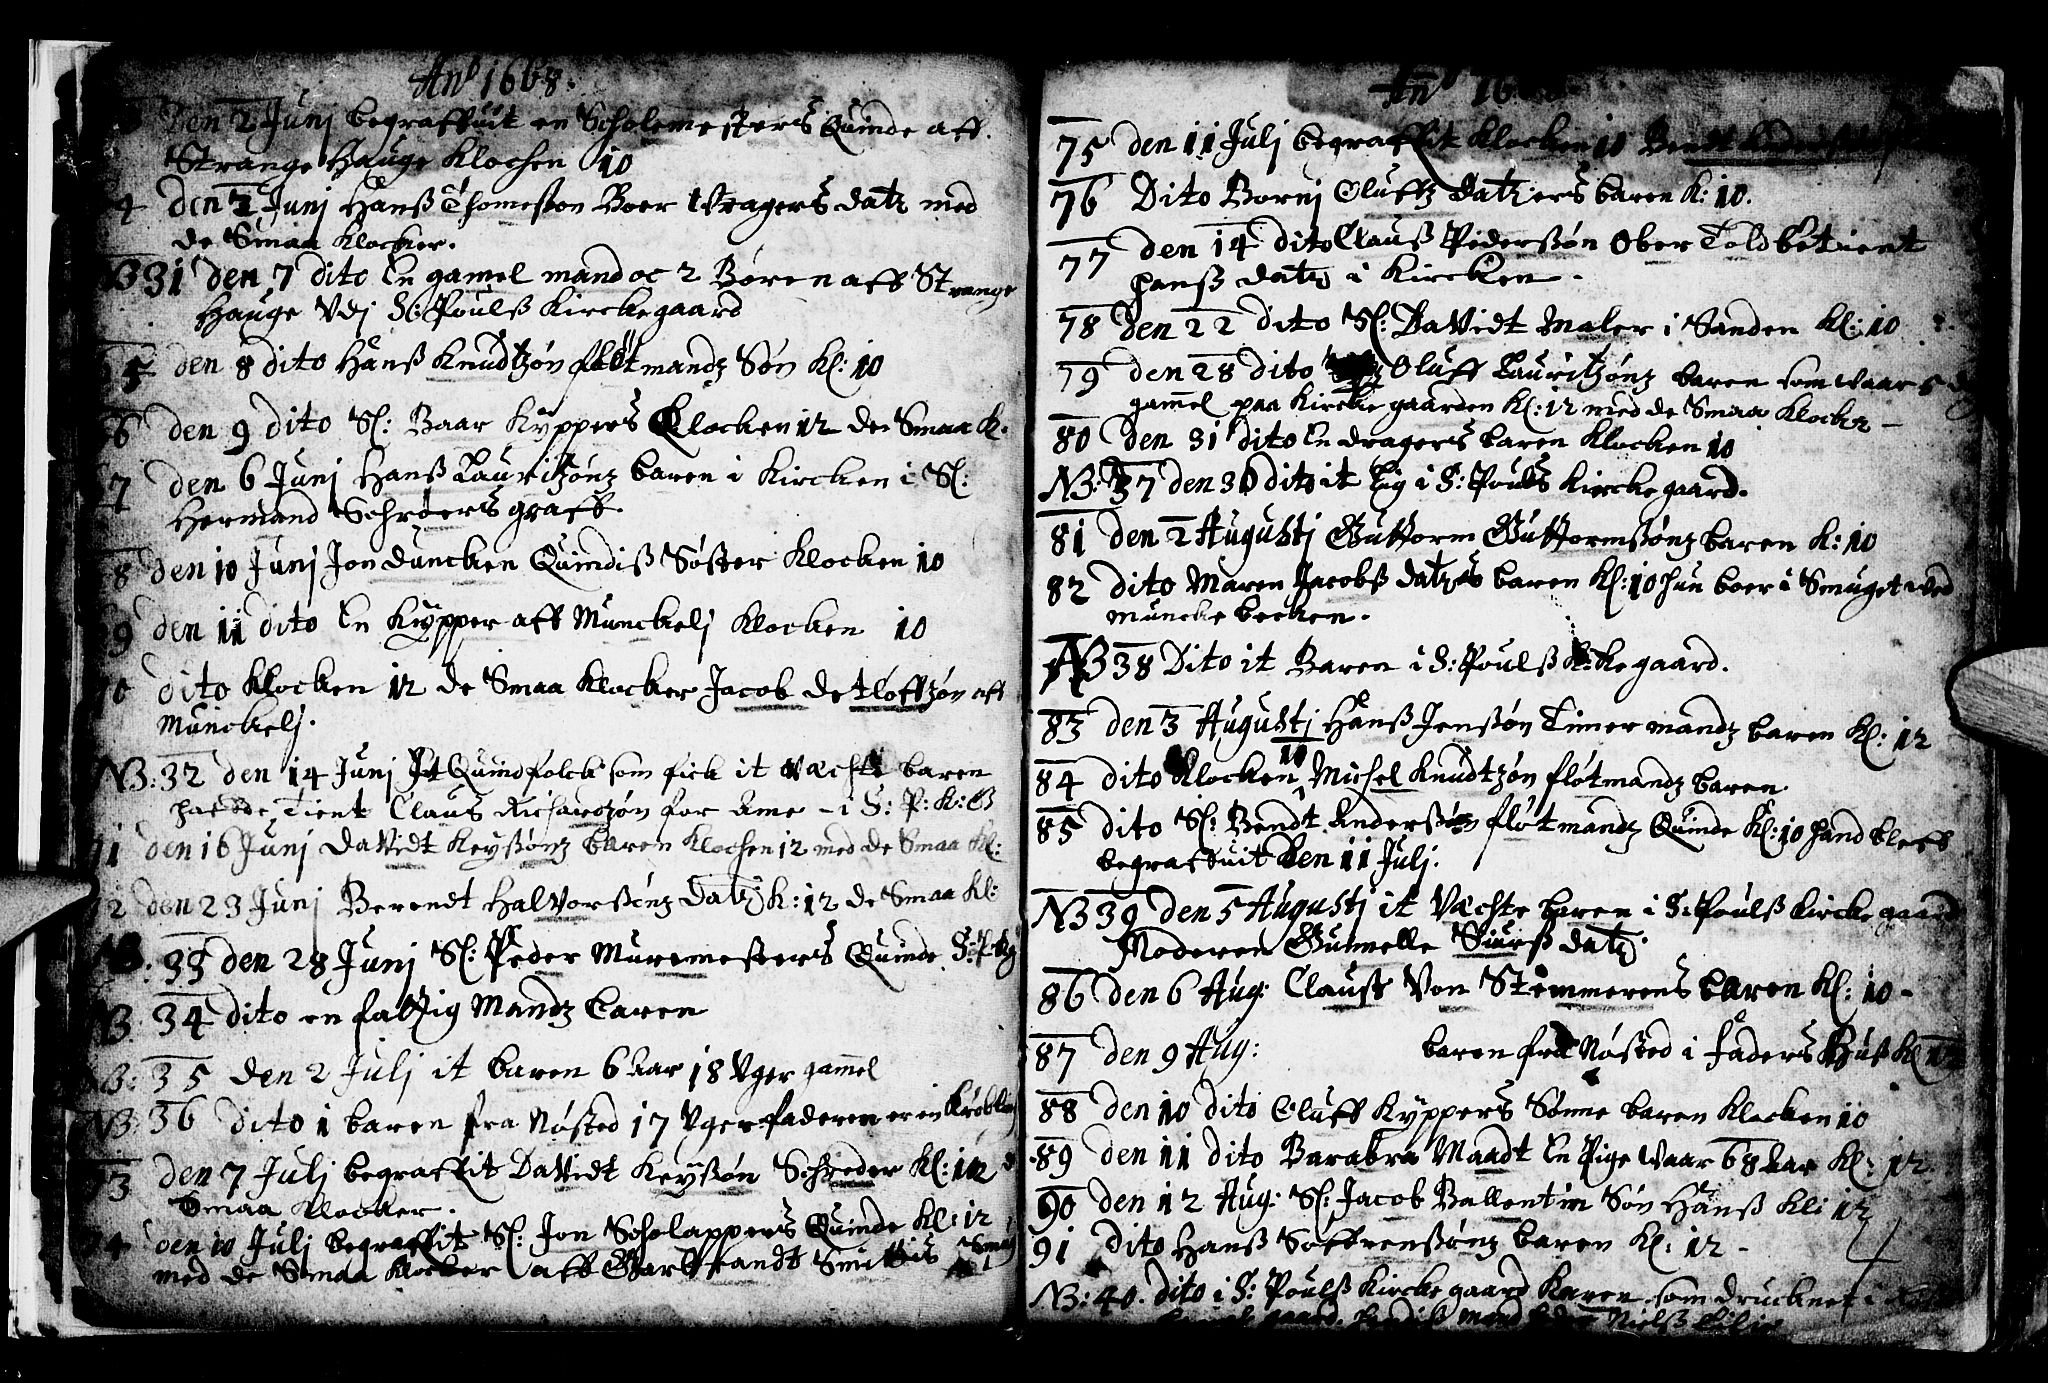 Anº 1668.
Den 2 Junj begraffuit en Scholemesters Quinde aff
Strange Hauge Klochen 10
4 den 2 Junj Hanß Thomeßon Boer Dragers datz med
de Smaa Klocker.
NB 31 den 7 dito En gamel mand oc 2 Børen aff Strange
Hauge Vdj St: Poulß Kirckegaard
5 den 8 dito Hanß Knudtzøn fløtmandz Søn Kl: 10
6 den 9 dito Sl: Baar Kÿppers Klocken 12 de Smaa K.
7 den 6 Junj Hanß Lauritzønz baren i Kircken i Sl:
Hermand Schrøers graff.
8 den 10 Junj Jon Duncken Quindiß Søster Klocken 10
9 den 11 dito En Kÿpper aff Munckelj Klocken 10
10 dito Klocken 12 de Smaa Klocker Jacob Detløffzøn aff
Munckelj.
NB: 32 den 14 Junj It Quindfolck som fick it Væchte baren
hafde Tient Claus Richardzøn for Ame - i S: P: K: G
11 den 16 Junj Davidt Keyßønz baren Klocken 12 med de Smaa Kl:
12 den 23 Junj Berendt Halvorßønz Datz K: 12 de Smaa Kl:
NB: 33 den 28 Junj Sl: Peder Muremesters Quinde S: P: Kg
NB. 34 dito en fattig Mandz baren
NB: 35 den 2 Julj it baren 6 Aar 18 Vger gamel
NB: 36 dito 1 baren fra Nøsted 17 Vger faderen er en Krøbling
73 den 7 Julj begraffit Davidt Keyßøn Schreder Kl: 12 d
Smaa Klocker.
74 den 10 Julj begraffit Sl: Jon Scholappers Quinde Kl: 12
med de Smaa Klocker aff Garbrandt Smittis Smug
Anº 16
75 den 11 Julj begraffit Klocken 10 Bendt Anderß
76 Dito Bornj Oluffz Datzers baren K: 10.
77 den 14 dito Clauß Pederßøn Ober Toldbetient
hanß datz i Kircken.
78 den 22 dito Sl: Davidt Maler i Sanden Kl: 10
79 den 28 dito Oluff Lauritzønz baren som waar 5 dg
gamel paa Kirckegaarden Kl: 12 med de Smaa Klocker -
80 den 31 dito En dragers baren Klocken 10
NB: 37 den 30 dito it Lig i S: Pouls Kirckegaard.
81 den 2 Augustj Guttorm Guttormßønz baren K: 10
82 dito Maren Jacobß datzes baren Kl: 10 hun boer i Smuget ved
muncke becken.
NB 38 Dito it Baren i S: Poulß K:kegaard.
83 den 3 Augustj Hanß Jenßøn Timermandz baren Kl: 12
84 dito Klocken 10 Michel Knudtzøn fløtmandz baren
85 dito Sl: Bendt Anderßøn fløtmandz Quinde Kl: 10 hand bleff
begraffuit den 11 Julj.
NB 39 den 5 Augustj it Væchte baren i S: Poulß Kirckegaard
Moderen Gunnelle Siurß datz.
86 den 6 Aug: Clauß Von Stemmerens baren Kl: 10 -
87 den 9 Aug: baren fra Nøsted i Faders Huß Kl 12
88 den 10 dito Oluff Kÿppers Sønne baren Klocken 10
89 den 11 dito Barabra Maadt En Pige waar 68 Aar Kl: 12.
90 den 12 Aug: Sl: Jacob Ballentin Søn Hanß Kl: 12
91 dito Hanß Søffrenßønz baren Kl: 12 -
NB: 40. dito i S: Poulß Kirckegaard Karen som drucknet i
mand Nielß